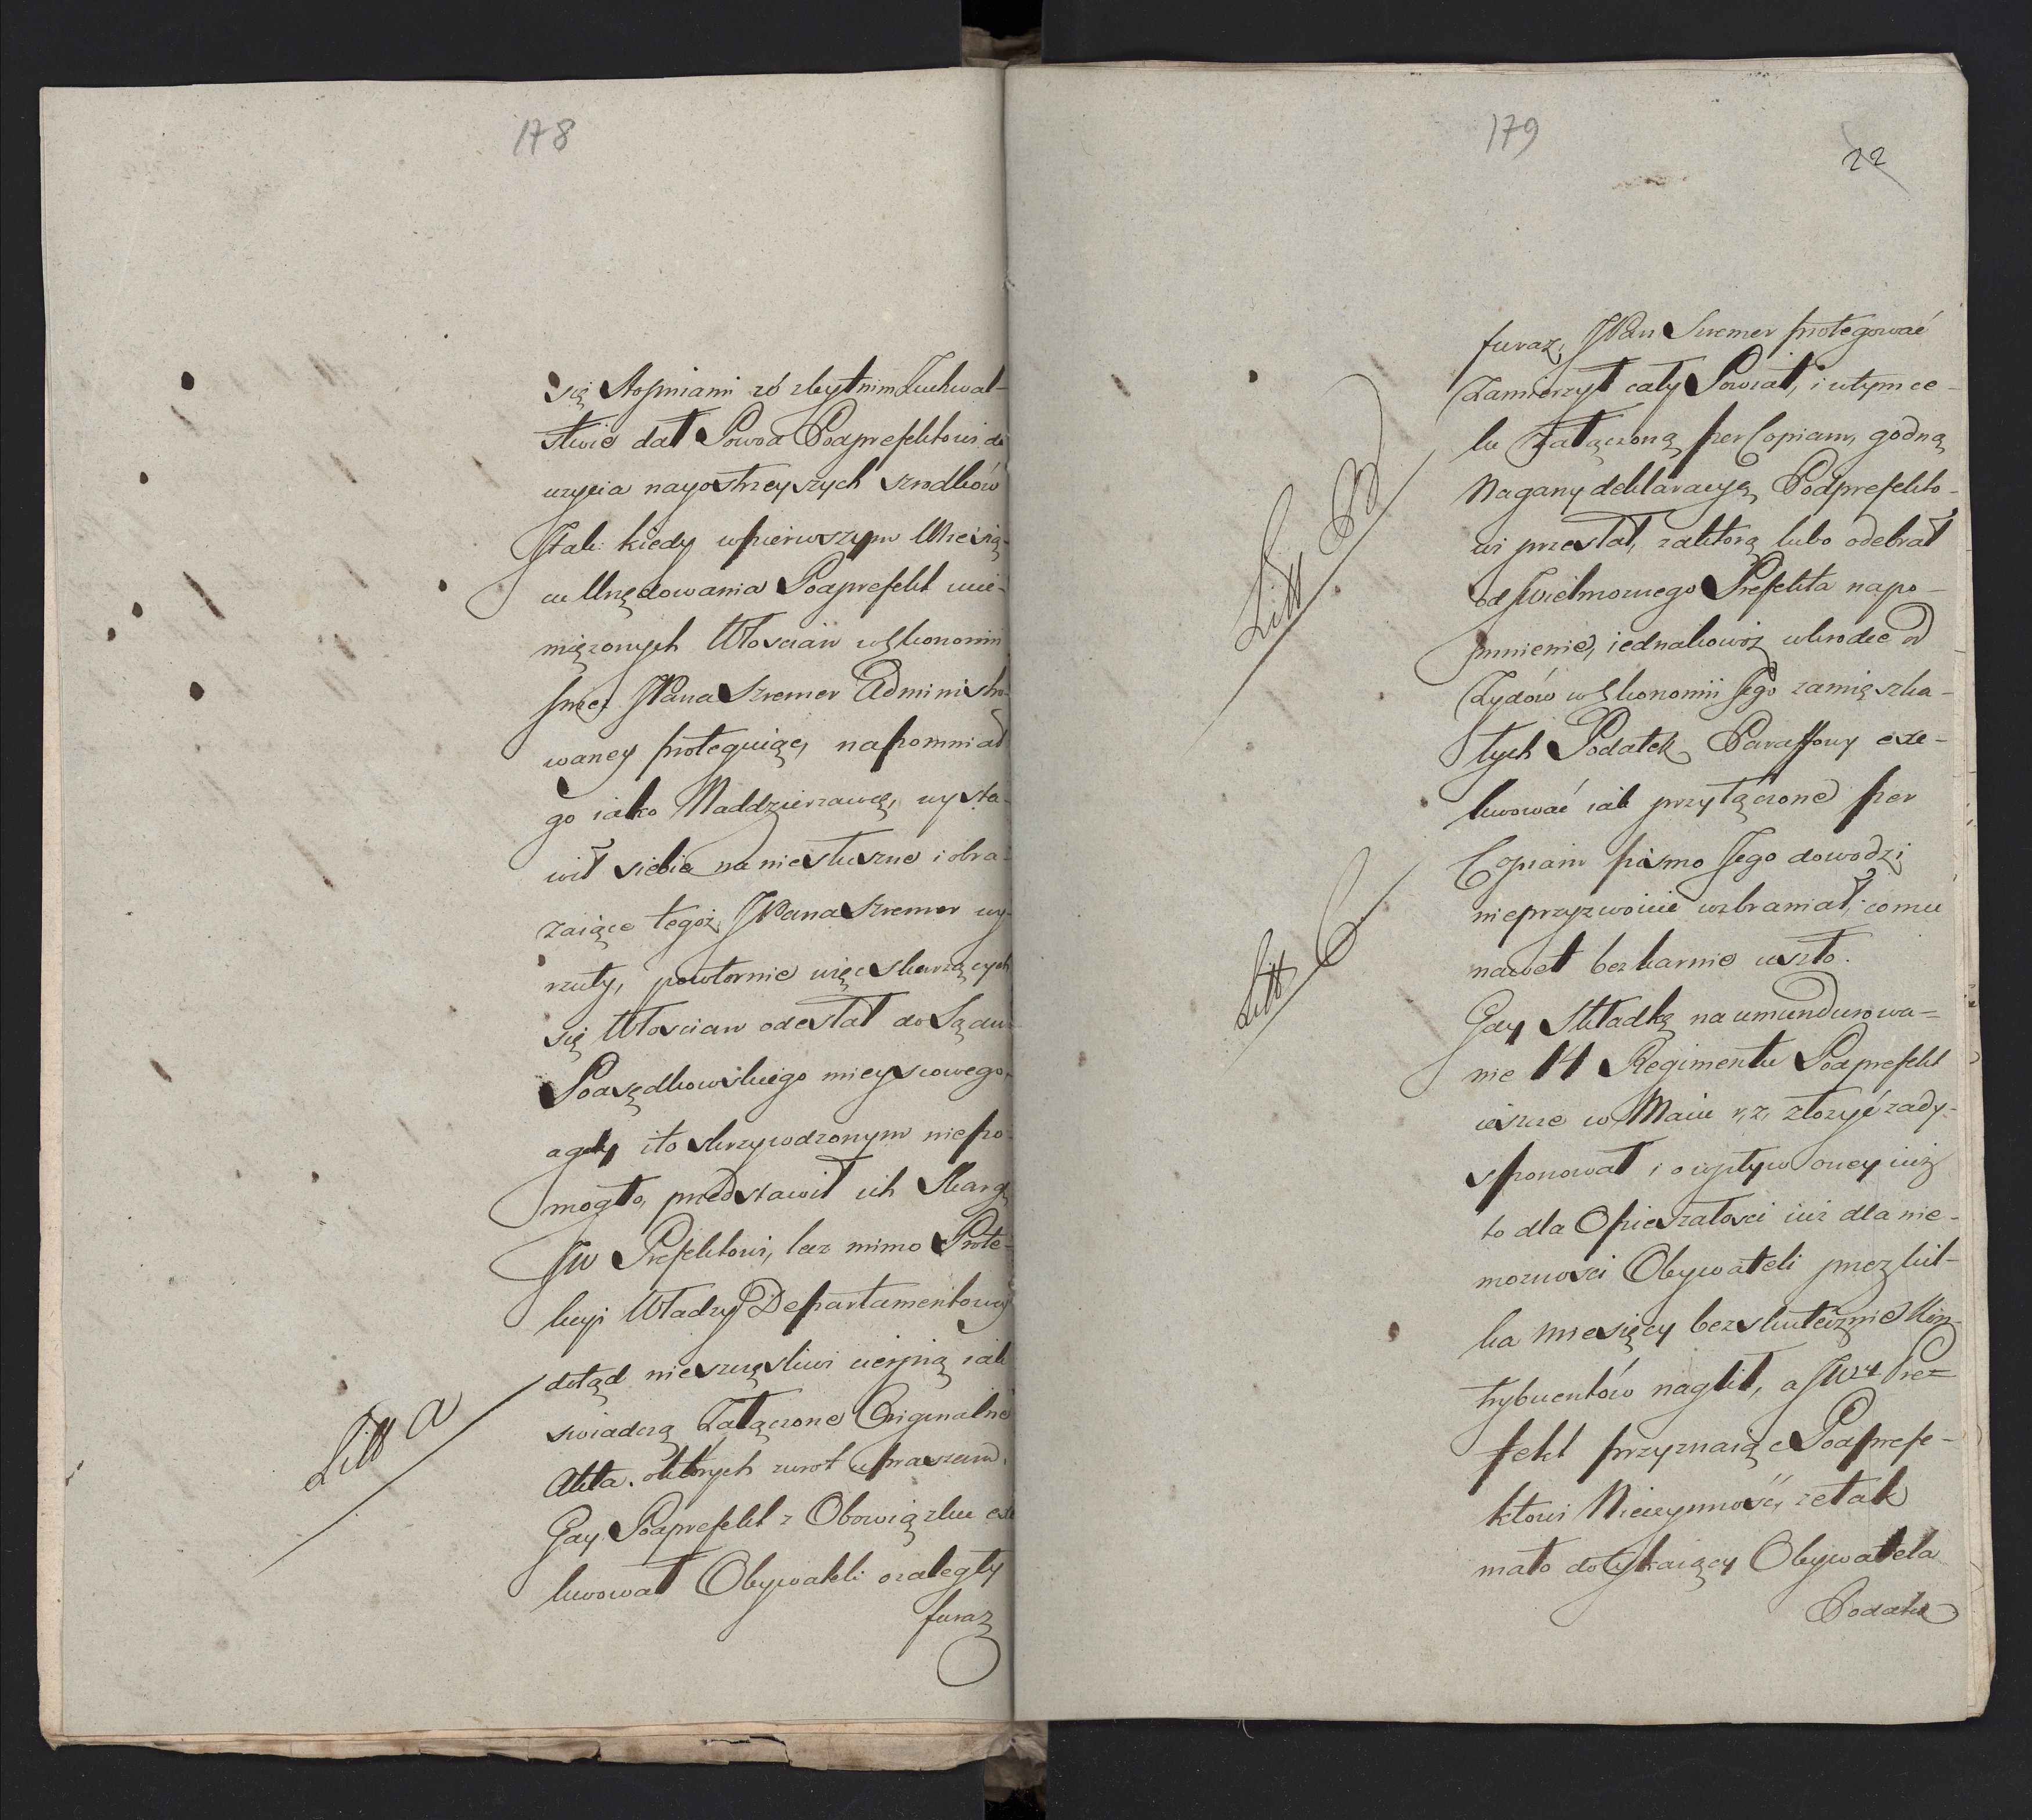 178
się stopniami w zbytnim Zuchwal-
stwie dał Powod Podprefektowi do
uzycia nayostrzeyszych srodków
Jtak kiedy wpierwszym Miesią-
cu Urzędowania Podprefekt ucie-
miężonych Włoscian w Ekonomii
przez JPana Szremer Administro-
waney protegując, napomniał
go iako Naddzierzawcę, wysta-
wił siebie na niesłuszne i obra-
zaiące tegoż JPana Szremer wy-
rzuty, powtornie więc skarzących
się Włoscian odesłał do Sądu
Podsędkowskiego mieyscowego,
a gdy i to skrzywdzonym niepo-
mogło, przedstawił ich Skargę
JW Prefektowi, lecz mimo Prote-
kcyi Władzy Departamentowey
dotąd nieszczęsliwi cierpią iak
swiadczą Załączone Originalne
Akta. o których zwrot upraszam.
Litt A
Gdy Podprefekt z Obowiązku exe
kwował Obywateli o zaległy
furaz
179
22
furaz, JPan Szremer protegować
Zamierzył cały Powiat, i w tym ce-
lu Załączoną per Copiam, godną
Nagany deklaracyą Podprefekto-
wi przesłał, za ktorą lubo odebrał
od JWielmoznego Prefekta napo-
mnienie, iednakowoż wkrodce od
Zydów w Ekonomii Jego zamięszka-
łych Podatek Paraffowy exe-
kwować iak przyłączone per
Copiam pismo Jego dowodzi
nieprzyzwoicie wzbraniał, co mu
nawet bezkarnie uszło.
Litt B
Litt C
Gdy Składkę na umundurowa-
nie 14 Regimentu Podprefekt
ieszcze w Maiu r. z. złozyć zady-
sponował i o wpływ oney iuż
to dla Opieszałosci iuż dla nie-
moznosci Obywateli przez kil-
ka miesięcy bezskutecznie Kon-
trybuentów naglił, a JWy Pre-
fekt przyznaiąc Podprefe-
ktowi Nieczynność, ze tak
mało dotykaiący Obywatela
Podatek